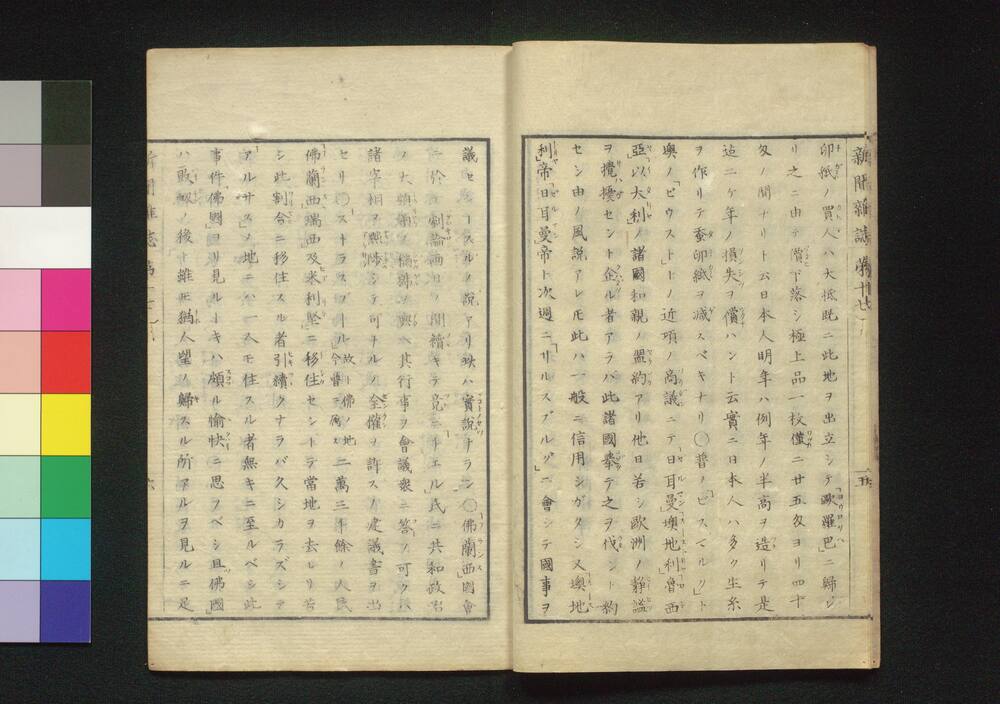 新聞雑誌 第十七
卵紙ノ買人ハ大抵既ニ此地ヲ出立シテ「歐羅巴」ニ歸レ
リ之ニ由テ價下落シ極上品一枚僅ニ廿五匁ヨリ四十
匁ノ間ナリト云日本人明年ハ例年ノ半高ヲ造リテ是
迠二ケ年ノ損失ヲ償ハント云實ニ日本人ハ多ク生糸
ヲ作リテ蚕卵紙ヲ減スベキナリ〇普ノ「ビスマルク」ト
奥ノ「ビウスト」トノ近頃ノ商議ニテ「日耳曼」「墺地利」「魯西
亞」「以太利」ノ諸國和親ノ盟約アリ他日若シ歐洲ノ靜謐
ヲ攪擾セント企ル者アラバ此諸國擧テ之ヲ伐ント約
セン由ノ風説アレ𪜈此ハ一般ニ信用シガタシ又「墺地
利」帝「日耳曼」帝ト次週ニ「リルスブルグ」ニ會シテ國事ヲ
議セントスルノ説アリ 實説ナラン〇「佛蘭西」國會
ニ於 ノ開 キテ 「チエル」氏ニ共和政
ノ大 其行事ヲ會議衆ニ答ノ可ク
諸宰相ヲ黜陟シテ可ナルノ全權ヲ許スノ建議書ヲ出
セリ〇「ストラスブール」 二萬三千餘ノ人民
「佛蘭西」「瑞西」及「米利堅」ニ移住セントテ當地ヲ去レリ若
シ此割合ニ移住スル者引續クナラバ久シカラズシテ
「アルサス」ノ地ニハ一人モ住スル者無キニ至ルベシ此
事件「佛國」ヨリ見ルトキハ頗ル愉快ニ思フベシ且「佛國」
ハ敗衂ノ後ト雖𪜈猶人望ノ歸スル所アルヲ見ルニ足